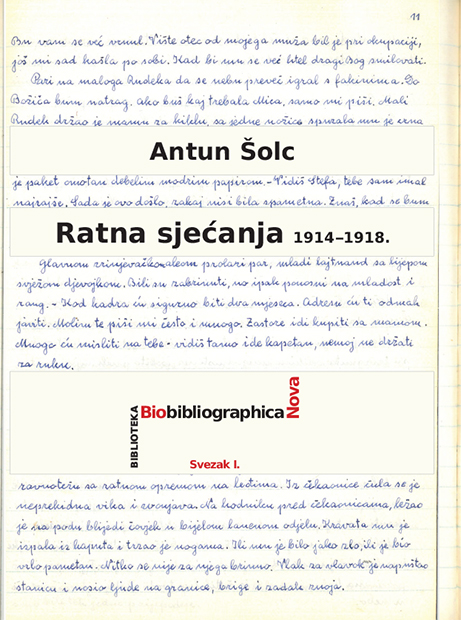 11
Bu vam se već vrnul. Vište otec od mojega muža bil je pri okupaciji,
još mi sad hašla po sobi. Kad bi mu se već htel dragi Bog smilovati.
Pazi na maloga Rudeka da se nebu preveć igral s fakinima. Do
Božića bum natrag. Ako buš kaj trebala Mica, samo mi piši. Mali
Rudek držao je mamu za kiklu, sa jedne nožice spuzala mu je crna
Antun Šolc
je paket omotan debelim modrim papirom. - Vidiš Štefa, tebe sam imal
najraiše. Sada je ovo došlo, zakaj nisi bila spametna. Znaš, kad se bum
Ratna sjećanja 1914–1918.
Glavnom zrinjevačkom aleom prolazi par, mladi lajtnand sa lijepom
svježom djevojkom. Bili su zabrinuti, no ipak ponosni na mladost i
rang. - Kod kadra ću sigurno biti dva mjeseca. Adresu ću ti odmah
javiti. Molim te piši mi često i mnogo. Zastore idi kupiti sa mamom.
Mnogo ću misliti na tebe - vidiš tamo ide kapetan, nemoj me držati
za ruku.
BIBLIOTEKA
Biobibliographica
Nova
Svezak I.
ravnotežu sa ratnom opremom na leđima. Iz čekaonice čula se je
neprekidna vika i zvonjava. Na hodniku pred čekaonicama, ležao
je na podu blijedi čovjek u bijelom lanenom odjelu. Kravata mu je
ispala iz kaputa i trzao je nogama. Ili mu je bilo jako zlo, ili je bio
vrlo pametan. Nitko se nije za njega brinuo. Vlak za vlakom je napuštao
stanicu i nosio ljude na granice, brige i zadah znoja.